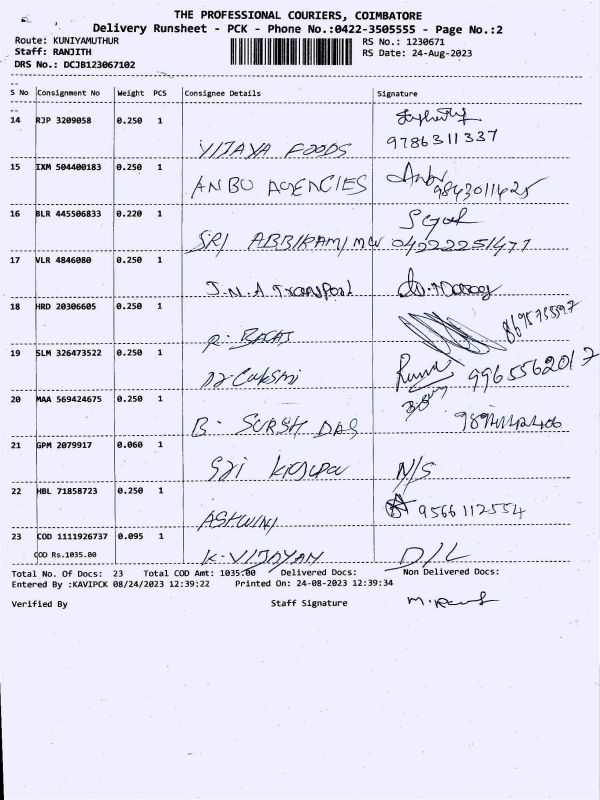 THE PROFESSIONAL COURIERS, COIMBATORE
Delivery Runsheet - PCK - Phone No.:0422-3505555 - Page No.:2
Route: KUNIYAMUTHUR RS No.: 1230671
Staff: RANJITH RS Date: 24-Aug-2023
DRS No.: DCJB123067102
S No Consignment No Weight PCS Consignee Details Signature
14 RJP 3209058 0.250 1
VIJAYA FOODS 9786311337
15 IXM 504400183 0.250 1
ANBU AGENCIES Anbu 9843011425
16 BLR 445506833 0.220 1
SRI ABBIRAMI MW 04222251477
17 VLR 4846080 0.250 1
J.N.A Transport
18 HRD 20306605 0.250 1
R.
19 SLM 326473522 0.250 1
9965562017
20 MAA 569424675 0.250 1
B. SURSH DAS
21 GPM 2079917 0.060 1
Sri N/S
22 HBL 71858723 0.250 1
ASHWINI 9566112554
23 COD 1111926737 0.095 1
COD Rs.1035.00
K. VIJAYAN D/L
Total No. Of Docs: 23 Total COD Amt: 1035.00 Delivered Docs: Non Delivered Docs:
Entered By :KAVIPCK 08/24/2023 12:39:22 Printed On: 24-08-2023 12:39:34
Verified By Staff Signature